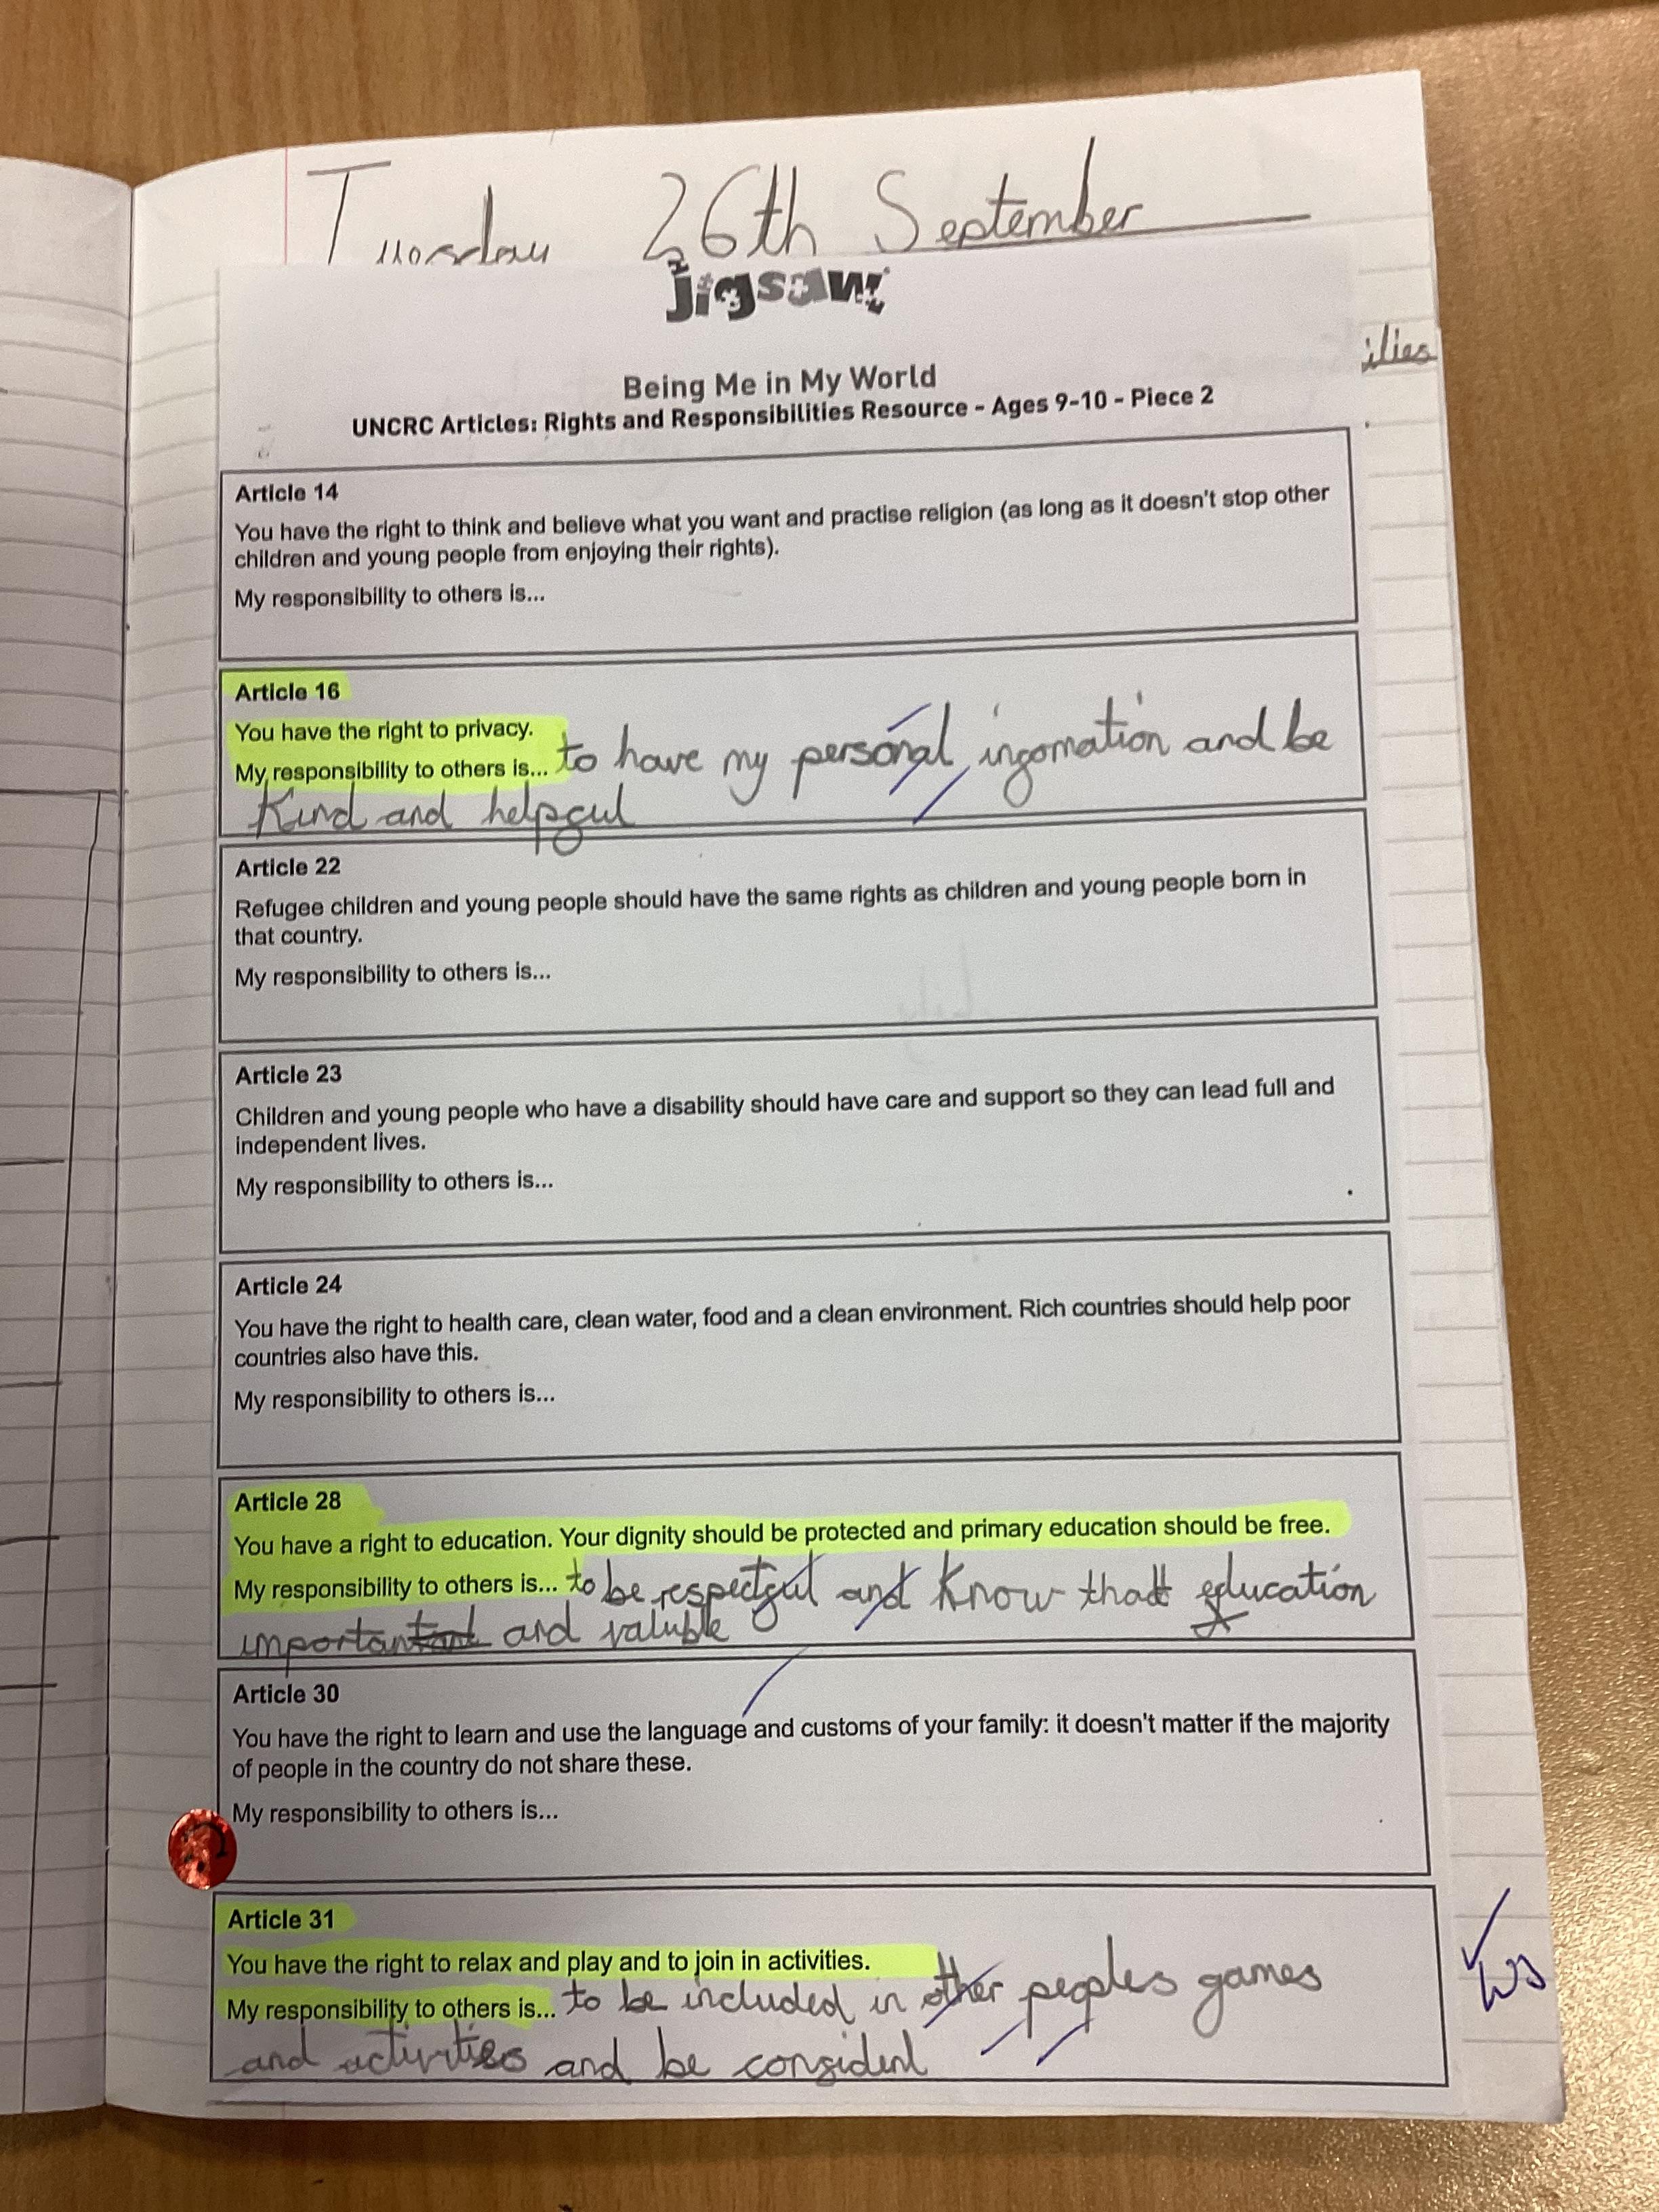 Tuesday 26th September
jigsaw
ilies
Being Me in My World
UNCRC Articles: Rights and Responsibilities Resource - Ages 9-10 - Piece 2
Article 14
You have the right to think and believe what you want and practise religion (as long as it doesn't stop other
children and young people from enjoying their rights).
My responsibility to others is...
Article 16
You have the right to privacy.
My responsibility to others is... to have my personal ingomation and be
Kind and helpgul
Article 22
Refugee children and young people should have the same rights as children and young people born in
that country.
My responsibility to others is...
Article 23
Children and young people who have a disability should have care and support so they can lead full and
independent lives.
My responsibility to others is...
Article 24
You have the right to health care, clean water, food and a clean environment. Rich countries should help poor
countries also have this.
My responsibility to others is...
Article 28
You have a right to education. Your dignity should be protected and primary education should be free.
My responsibility to others is... to be respectgul and Know that education
important and valuble
Article 30
You have the right to learn and use the language and customs of your family: it doesn't matter if the majority
of people in the country do not share these.
My responsibility to others is...
Article 31
You have the right to relax and play and to join in activities.
My responsibility to others is... to be included in other peoples games
and activities and be congident